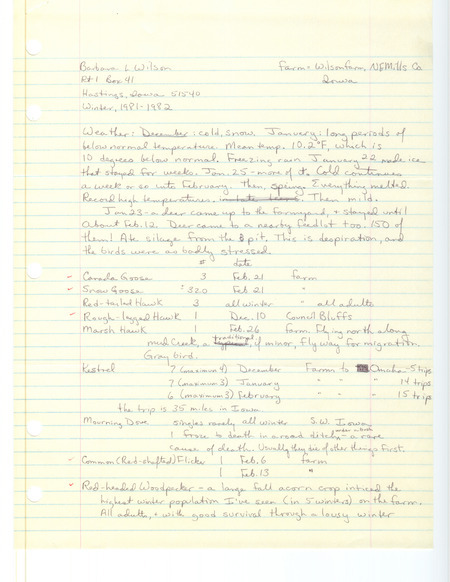 Barbara L Wilson Farm = Wilson farm, NE Mills Co.
Rt 1 Box 41 Iowa
Hastings, Iowa 51540
Winter, 1981-1982
Weather: December: cold, snow. January: long periods of
below normal temperature. Mean temp. 10.2°F, which is
10 degrees below normal. Freezing rain January 22 made ice
that stayed for weeks. Jan. 25 - more of it. Cold continues
a week or so into February. Then, spring. Everything melted.
Record high temperatures. Then mild.
Jan 23 - a deer came up to the farmyard, + stayed until
about Feb. 12. Deer came to a nearby feedlot too. 150 of
them! Ate silage from the pit. This is despiration, and
the birds were as badly stressed.
# date
Canada Goose 3 Feb. 21 farm
Snow Goose 320 Feb. 21 "
Red-tailed Hawk 3 all winter " all adults
Rough-legged Hawk 1 Dec. 10 Council Bluffs
Marsh Hawk 1 Feb. 26 farm. Flying north along
Mud Creek, a traditional, if minor, flyway for migration.
Gray bird.
Kestrel 7 (maximum 4) December Farm to Omaha - 5 trips
7 (maximum 3) January " " " 14 trips
6 (maximum 3) February " " " 15 trips
the trip is 35 miles in Iowa
Mourning Dove singles rarely all winter S.W. Iowa
1 froze to death in a road ditch - a rare
cause of death. Usually they die of other things first.
Common (Red-shafted) Flicker 1 Feb. 6 farm
1 Feb. 13 "
Red-headed Woodpecker - a large fall acorn crop inticed the
highest winter population I've seen (in 5 winters) on the farm.
All adults, + with good survival through a lousy winter